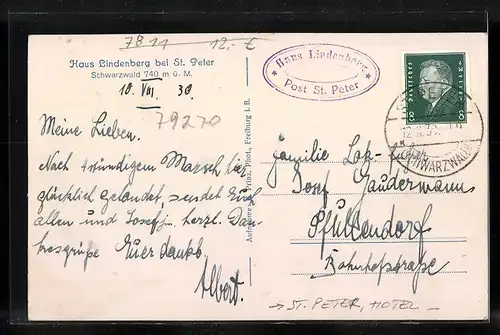 7811 12,- €
Haus Lindenberg bei St. Peter
Schwarzwald 740 m ü. M.
10. VIII. 30.
79270
Meine Lieben.
Nach 4stündigem Marsch hier
glücklich gelandet, sendet Euch
allen und Josefin herzl. Dan-
kesgrüße Euer dankb.
Albert.
Haus Lindenberg
Post St. Peter
DEUTSCHES REICH
8 8
SCHWARZWALD
Familie
Josef Gaudermann
Pfullendorf
Bahnhofstraße
→ ST. PETER, HOTEL -
Freiburg i. B.